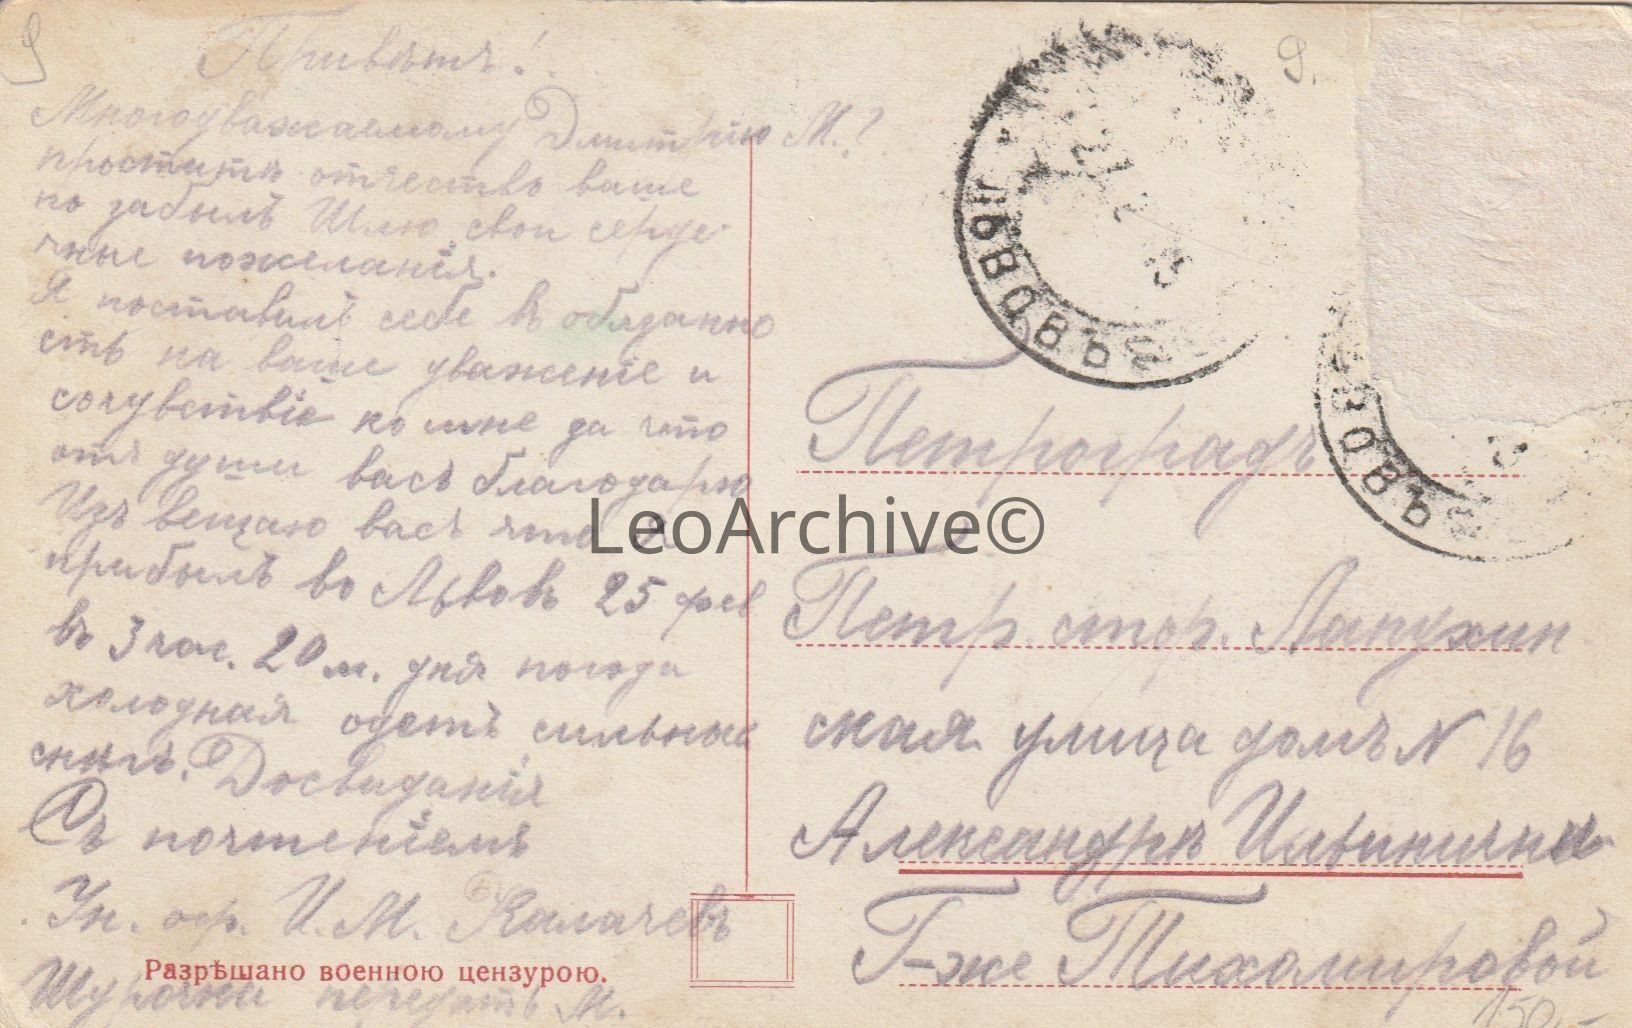 Привѣтъ!
Многоуважаемому Дмитрію М.?
простить отчество ваше
по забылъ Шлю свои серде
чные пожеланія.
Я поставилъ себе въ обязанно
сть на ваше уваженіе и
сочувствіе ко мне да что
отъ души васъ благодарю
Изъ вещаю васъ что Я
прибылъ во Львовъ 25 фев
въ 3 час. 20 м. дня погода
холодная одетъ сильный
снегъ. Досвиданія
Съ почтеніемъ
Ун. оф. И. М. Калачевъ
Разрѣшано военною цензурою.
передать М.
9
9.
ЛЬВОВЪ
ЬВОВЪ
Петроградъ
Петр. стор. Лапухин
ская улица домъ N 16
Александре Ильиничне
Г-же Тихомировой
150-
LeoArchive©